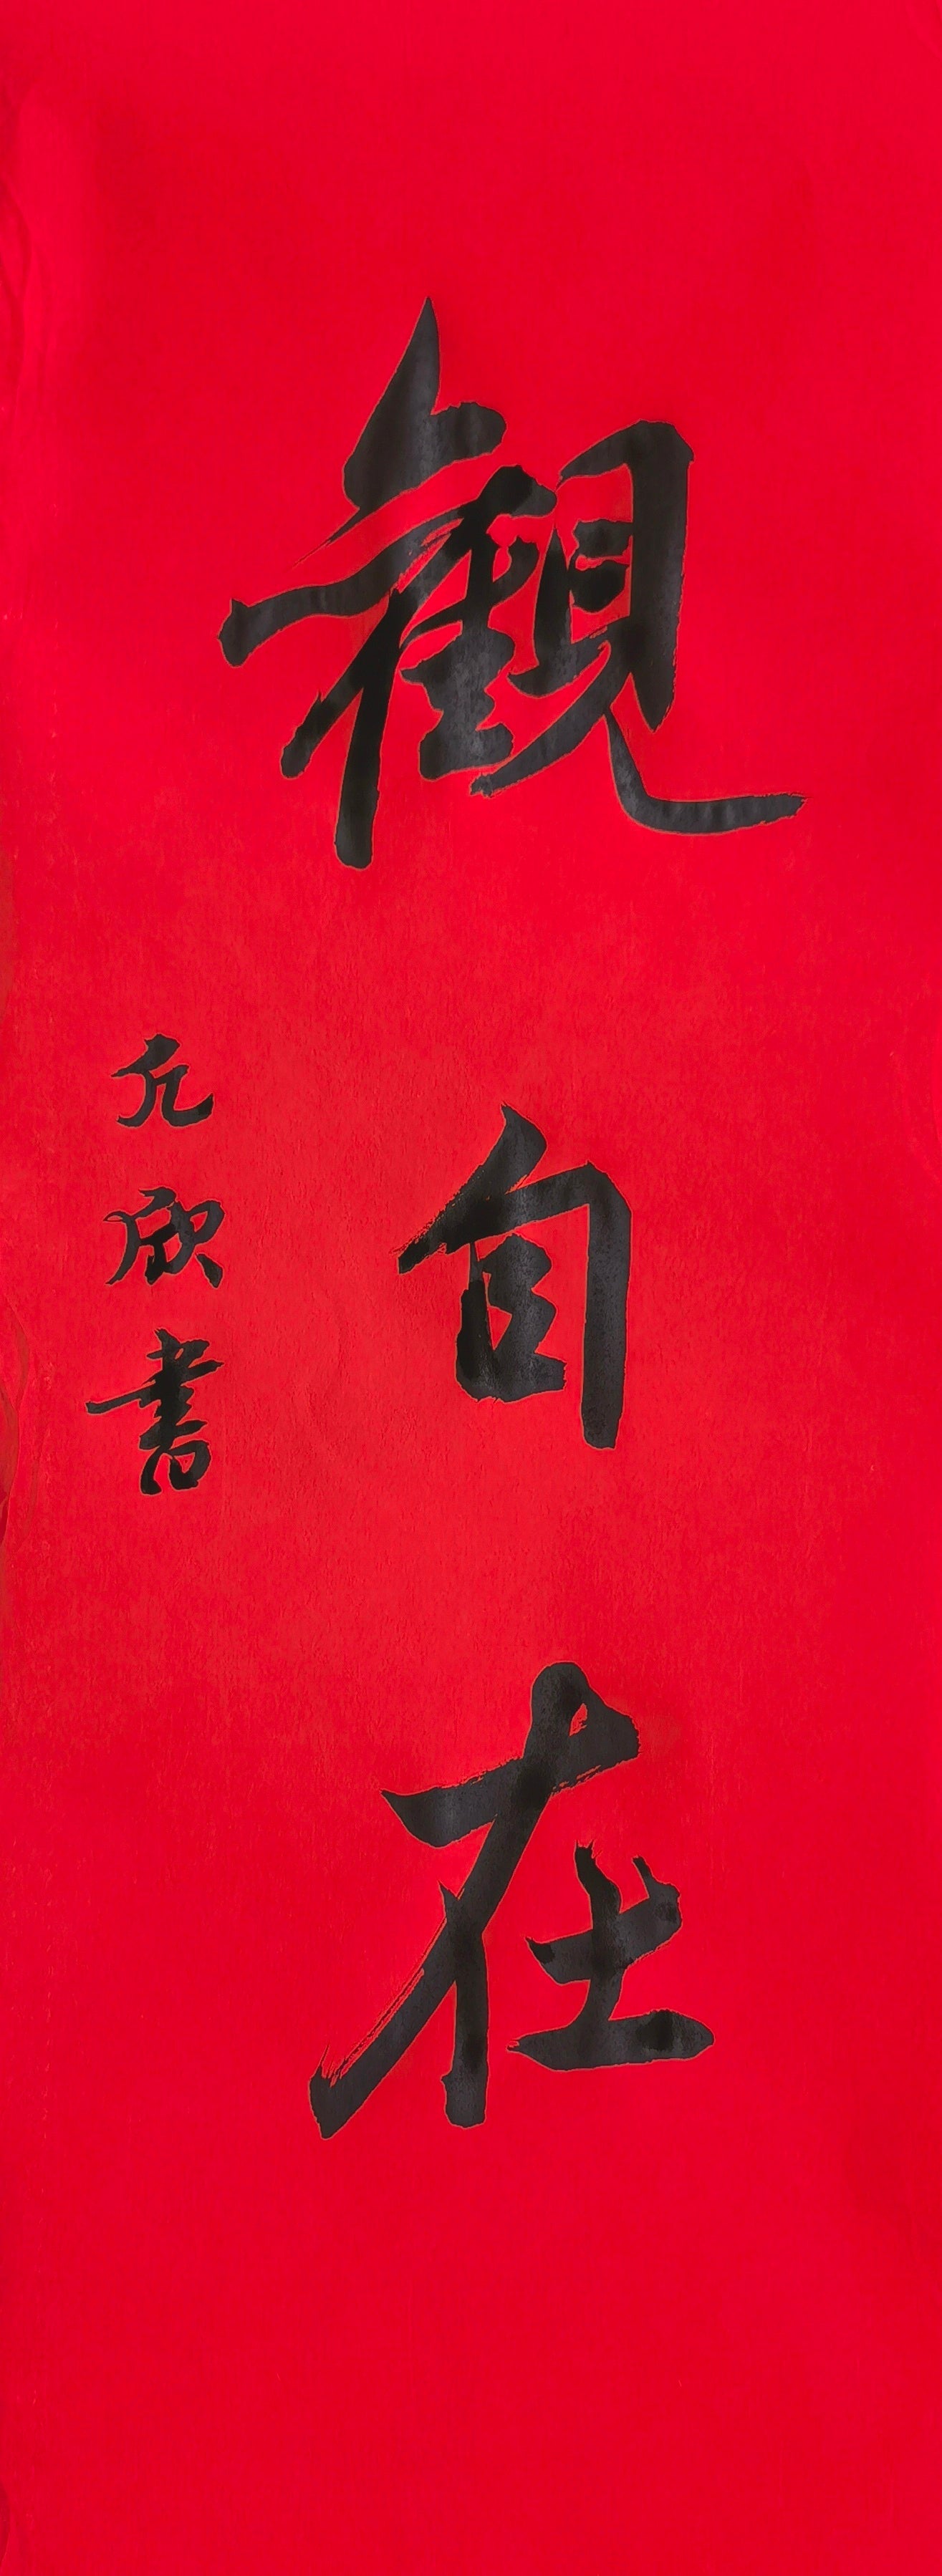 觀自在
元欣書